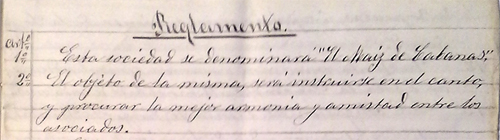 Reglamento.
artº
1º Esta sociedad se denominará "El Maiz de Cabanas".
2º El objeto de la misma, será instruirse en el canto,
y procurar la mejor armonia y amistad entre los
asociados.